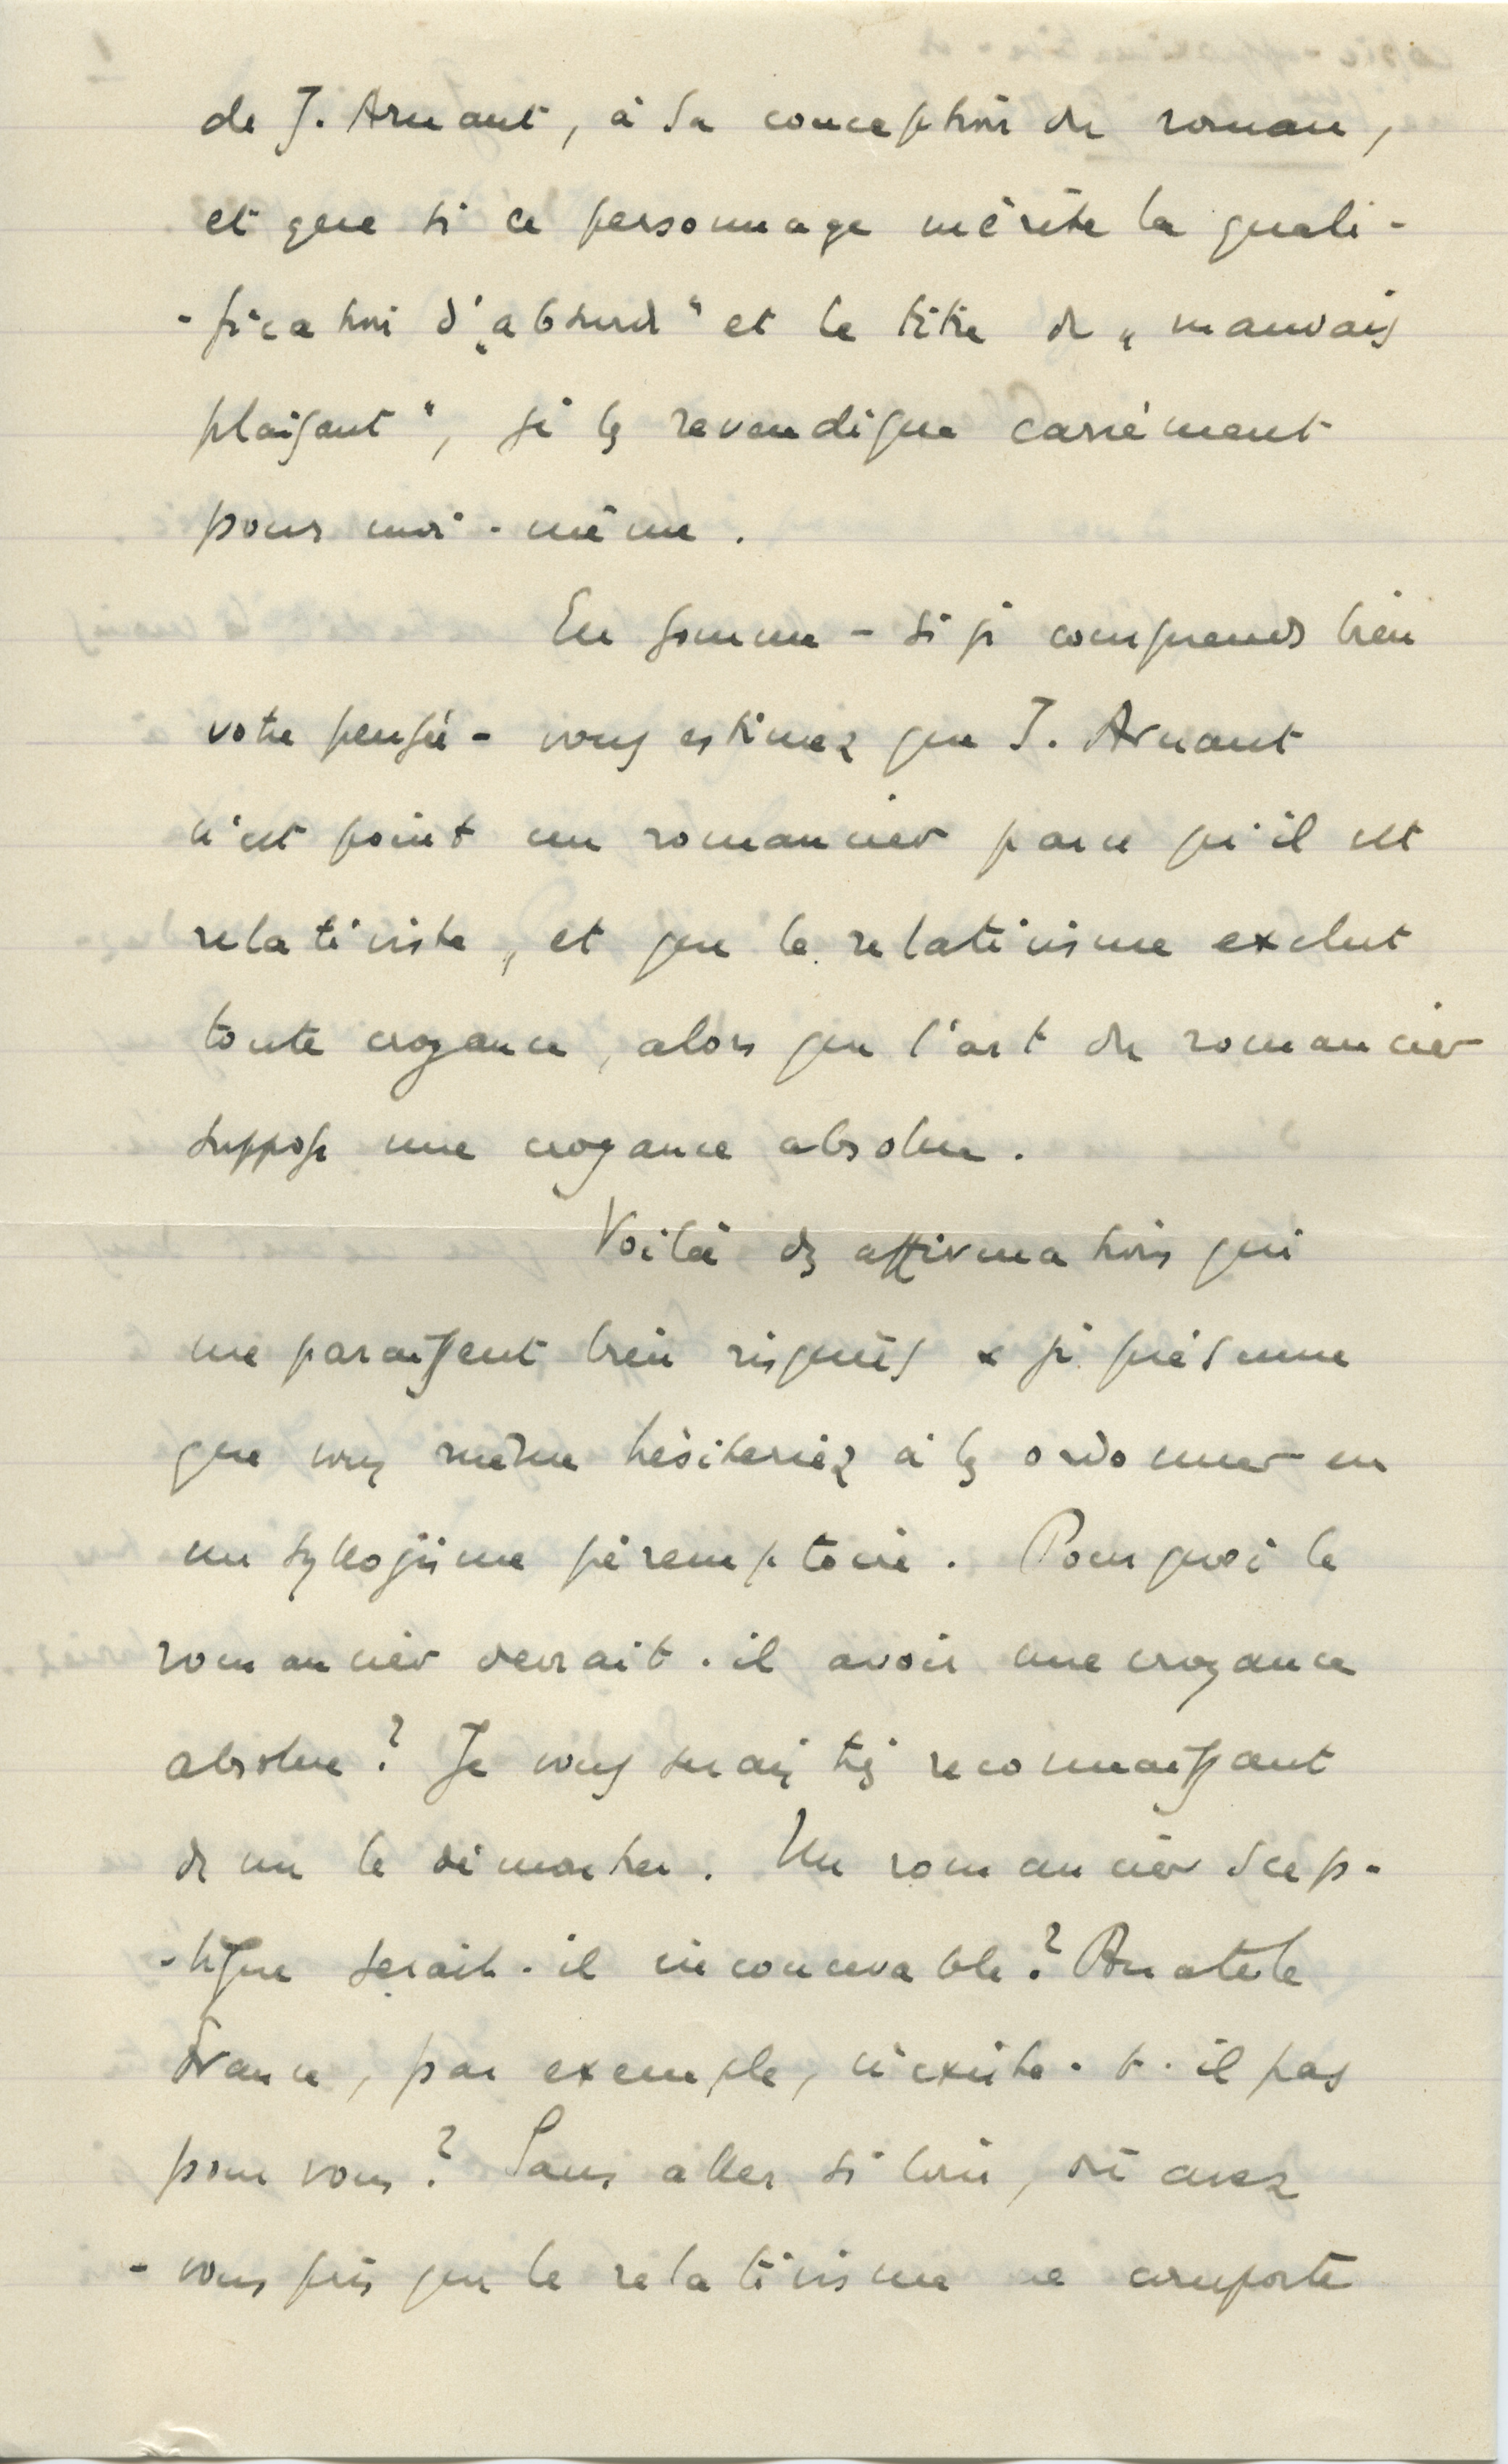 de J. Arnaut, à sa conception du roman,
et que si ce personnage mérite la quali-
-fication d'„absurde" et le titre de „mauvais
plaisant", je les revendique carrément
pour moi-même.
En somme - si je comprends bien
votre pensée - vous estimez que J. Arnaut
n'est point un romancier parce qu'il est
relativiste, et que le relativisme exclut
toute croyance, alors que l'art du romancier
suppose une croyance absolue.
Voilà des affirmations qui
me paraissent bien risquées & je présume
que vous même hésiteriez à les ordonner en
un syllogisme péremptoire. Pourquoi le
romancier devrait-il avoir une croyance
absolue? Je vous serais très reconnaissant
de me le démontrer. Un romancier scep-
-tique serait-il inconcevable? Anatole
France, par exemple, n'existe-t-il pas
pour vous? Sans aller si loin, où avez
-vous pris que le relativisme ne comporte